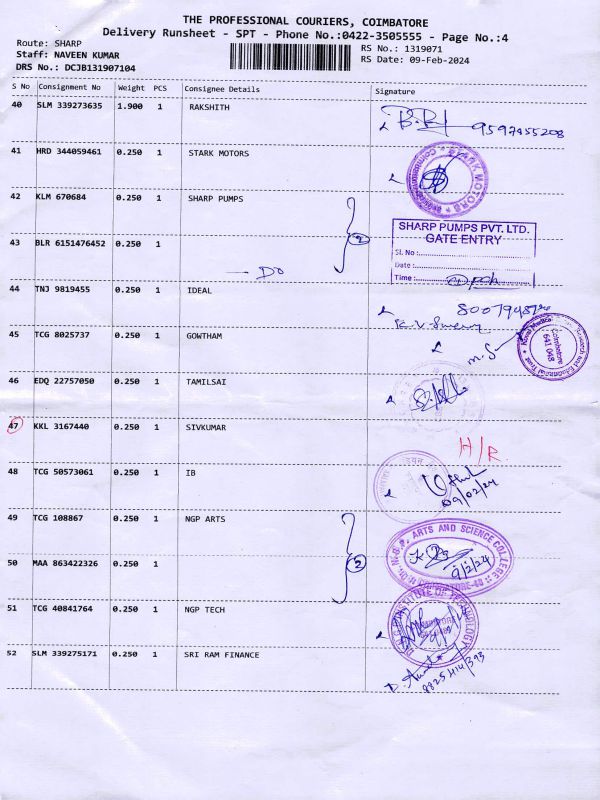 THE PROFESSIONAL COURIERS, COIMBATORE
Delivery Runsheet - SPT - Phone No.:0422-3505555 - Page No.:4
Route: SHARP
Staff: NAVEEN KUMAR
DRS No.: DCJB131907104
RS No.: 1319071
RS Date: 09-Feb-2024
S No Consignment No Weight PCS Consignee Details Signature
40 SLM 339273635 1.900 1 RAKSHITH
9597455208
41 HRD 344059461 0.250 1 STARK MOTORS
STARK MOTORS
42 KLM 670684 0.250 1 SHARP PUMPS
2
SHARP PUMPS PVT. LTD.
GATE ENTRY
Sl. No :
Date :
Time :
43 BLR 6151476452 0.250 1
DO
44 TNJ 9819455 0.250 1 IDEAL
45 TCG 8025737 0.250 1 GOWTHAM
M.S
Coimbatore
641 048
46 EDQ 22757050 0.250 1 TAMILSAI
47 KKL 3167440 0.250 1 SIVKUMAR
H/R
48 TCG 50573061 0.250 1 IB
09/02/24
49 TCG 108867 0.250 1 NGP ARTS
2
DR. N.G.P. ARTS AND SCIENCE COLLEGE
COIMBATORE-48
9/2/24
50 MAA 863422326 0.250 1
51 TCG 40841764 0.250 1 NGP TECH
INSTITUTE OF TECHNOLOGY
52 SLM 339275171 0.250 1 SRI RAM FINANCE